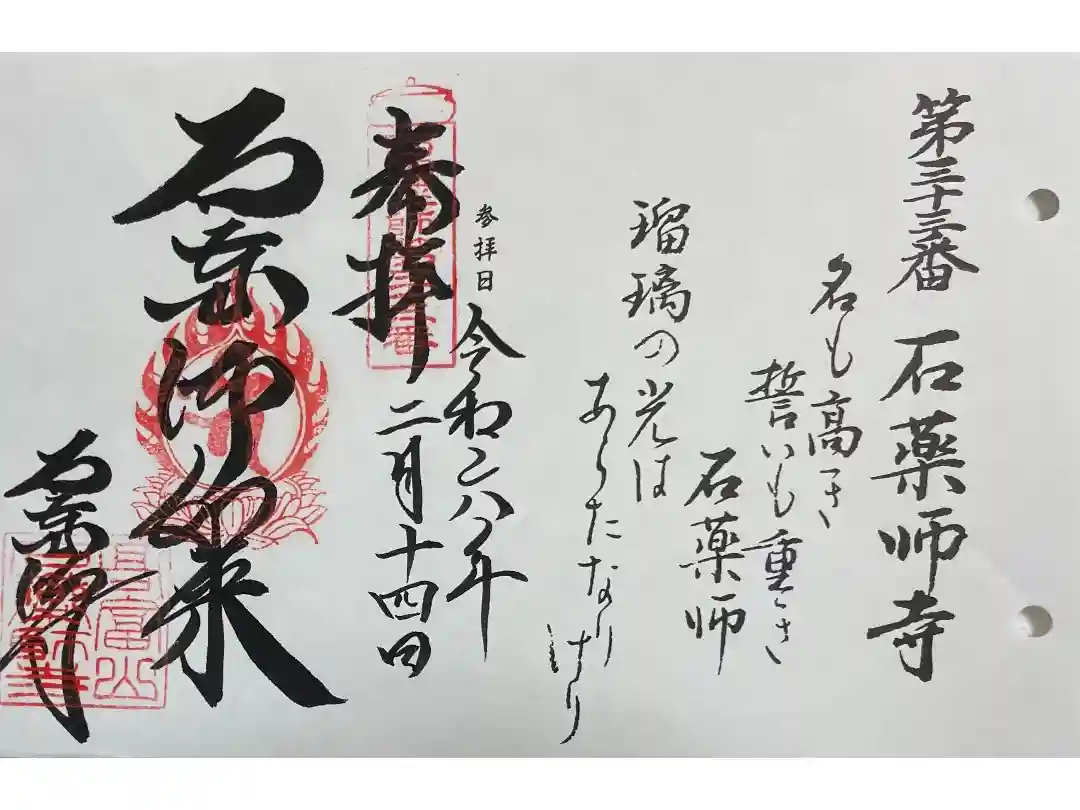 第三十三番 石薬師寺
名も高き
誓いも重き
石薬師
瑠璃の光は
あらたなり
けり
参拝日 令和六年
二月十四日
奉拝
石薬師如来
石薬師寺